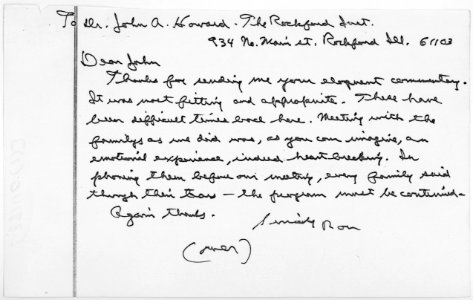 To Dr. John A. Howard - The Rockford Inst.
934 No. Main St. Rockford Ill. 61103
Dear John
Thanks for sending me your eloquent commentary.
It was most fitting and appropriate. These have
been difficult times back here. Meeting with the
familys as we did was, as you can imagine, an
emotional experience, indeed heart breaking. In
phoning them before our meeting, every family said
through their tears — the program must be continued.
Again thanks.
Sincerely Ron
(over)